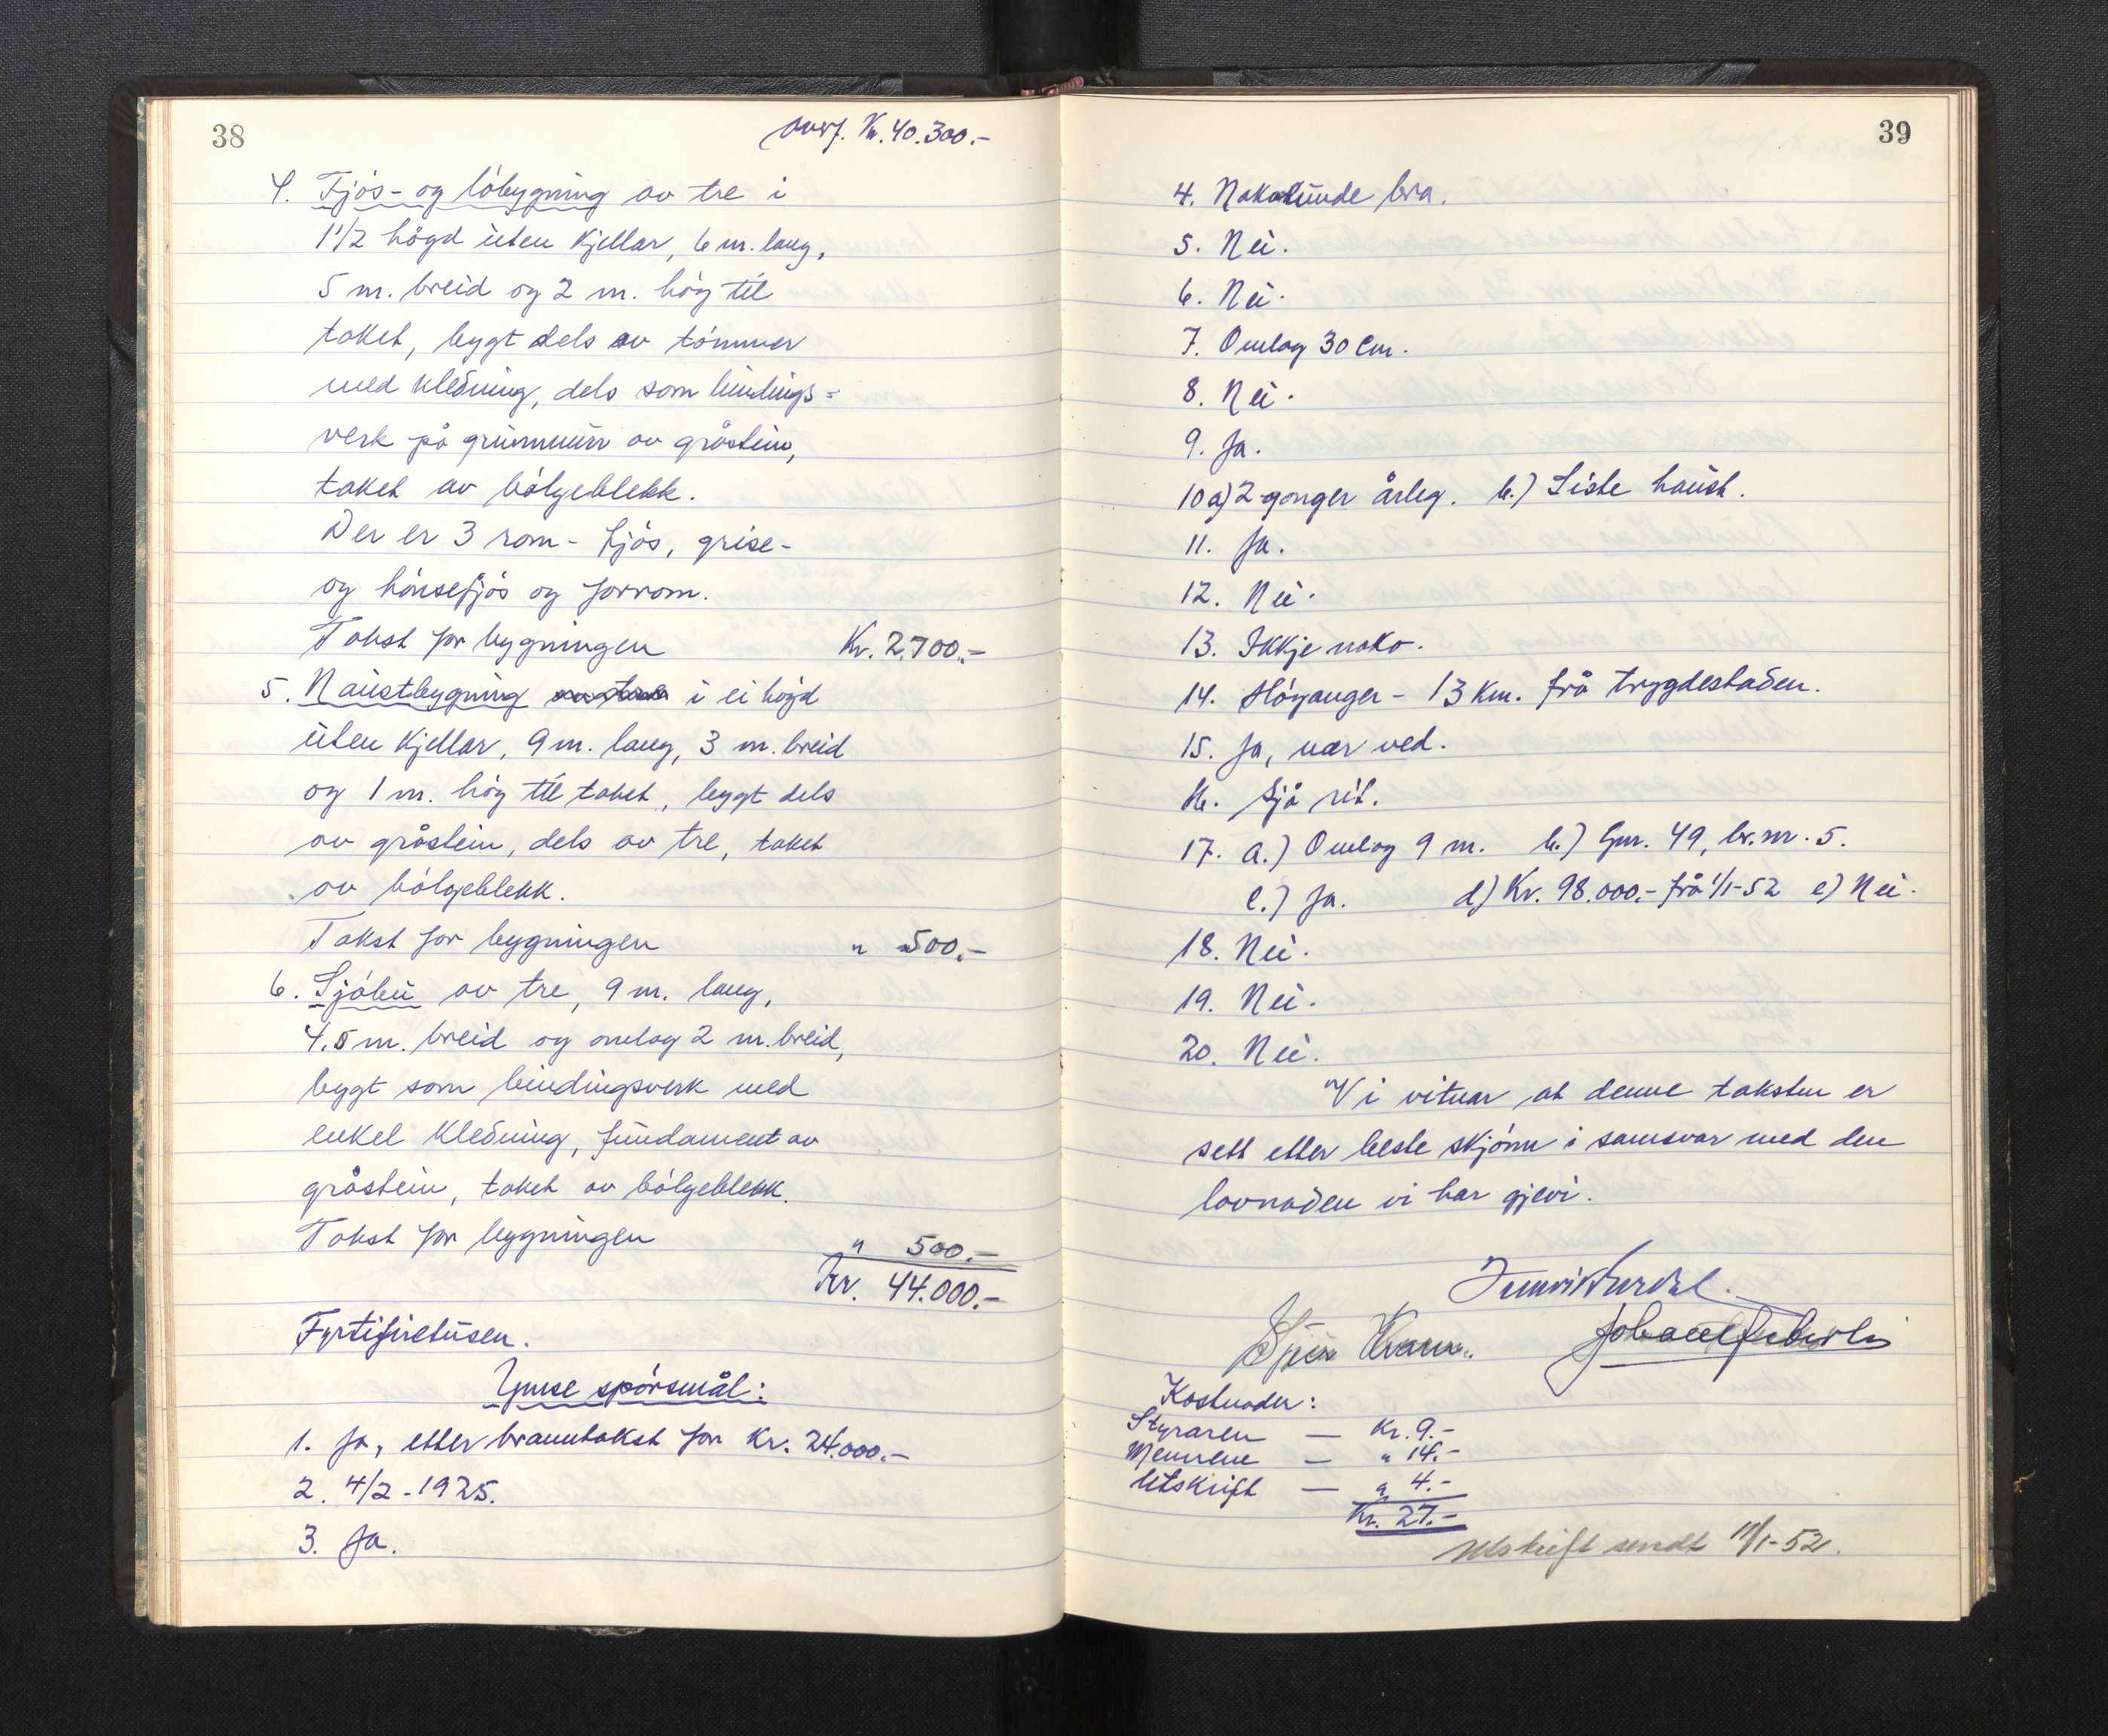 38
Overf. Kr. 40.300.-
4. Fjós- og lóbygning av tre i
1 1/2 högd uten kjellar, 6 m. lang,
5 m. breid og 2 m. hög til
taket, bygt dels av tömmer
med kledning, dels som bindings-
verk på grunnmur av gråstein,
taket av bölgeblekk.
Der er 3 rom - fjós, grise-
og hönsefjós og forrom.
Takst for bygningen Kr. 2.700.-
5. Naustbygning i ei högd
uten kjellar, 9 m. lang, 3 m. breid
og 1 m. hög til taket, bygt dels
av gråstein, dels av tre, taket
av bölgeblekk.
Takst for bygningen " 500.-
6. Sjöbu av tre, 9 m. lang,
4.5 m. breid og omlag 2 m. breid,
bygt som bindingsverk med
enkel kledning, fundament av
gråstein, taket av bölgeblekk.
Takst for bygningen " 500.-
Kr. 44.000.-
Fyrtifiretusen.
Ymse spörsmål:
1. Ja, etter branntakst for Kr. 24.000.-
2. 4/2-1925.
3. Ja.
39
4. Nokolunde bra.
5. Nei.
6. Nei.
7. Omlag 30 cm.
8. Nei.
9. Ja.
10 a) 2 gonger årleg. b.) Siste haust.
11. Ja.
12. Nei.
13. Ikkje noko.
14. Höyanger - 13 km. frå trygdestaden.
15. Ja, nær ved.
16. Sjå rit.
17. a.) Omlag 9 m. b.) Gnr. 49, br.nr. 5.
c.) Ja. d) Kr. 98.000.- frå 1/1-52 e) Nei.
18. Nei.
19. Nei.
20. Nei.
Vi vitnar at denne taksten er
sett etter beste skjönn i samsvar med den
lovnaden vi har gjevi.
Kvam.
Kostnader:
Styraren — Kr. 9.-
Mennene — " 14.-
Utskrift — " 4.-
Kr. 27.-
Utskrift sendt 11/1-52.